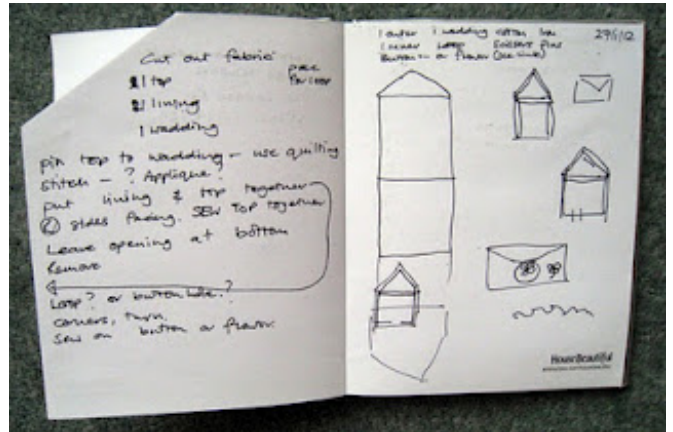 Cut out fabric
1 top
1 lining
1 wadding
pin top to wadding - use quilting
stitch - ? Applique?
put lining & top together
R sides facing. SEW TOP together
Leave opening at bottom
Remove
Loop? or buttonhole?
corners, turn.
Sew on button or flower.
1 outer 1 wadding cotton
1 inner Loop Scissors Pins
Button or flower (see link)
29/5/12
House Beautiful